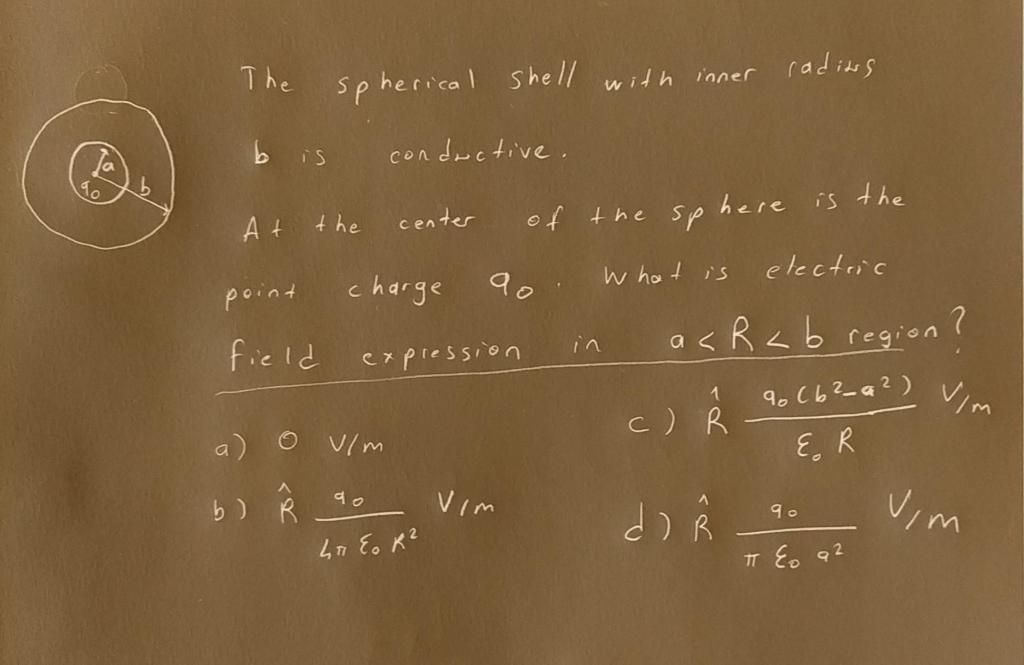 The spherical shell with inner radius
b is conductive.
At the center of the sphere is the
point charge q₀. What is electric
field expression in a < R < b region?
a
q₀
b
a) 0 V/m
b) R̂ q₀ / 4π ε₀ R² V/m
c) R̂ q₀ (b² - a²) / ε₀ R V/m
d) R̂ q₀ / π ε₀ a² V/m